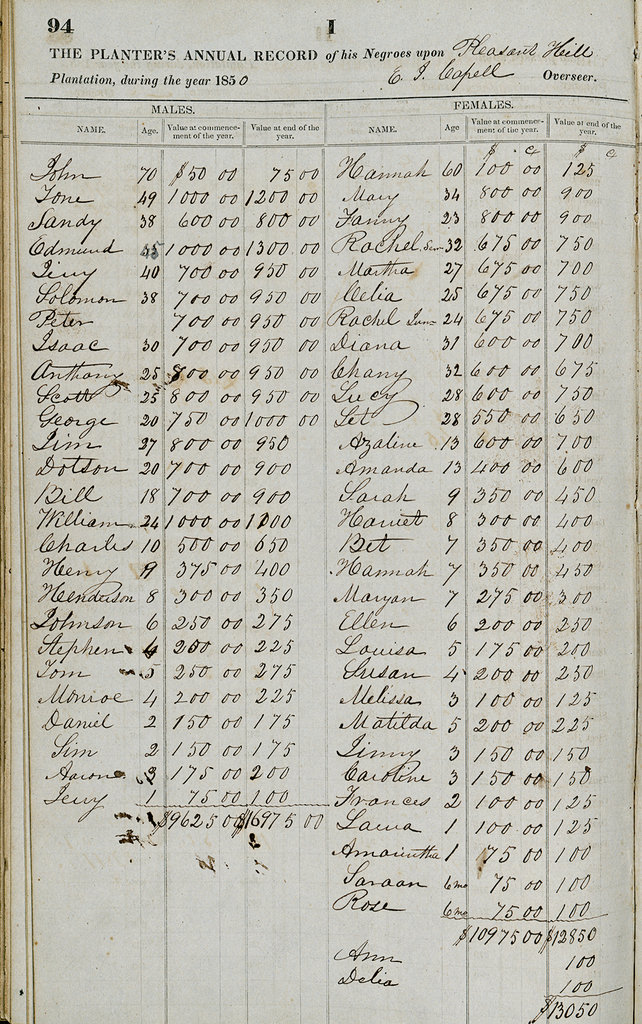 94 I
THE PLANTER'S ANNUAL RECORD of his Negroes upon Pleasant Hill
Plantation, during the year 1850 E. J. Capell Overseer.
MALES. FEMALES.
NAME. Age. Value at commencement of the year. Value at end of the year. NAME. Age Value at commencement of the year. Value at end of the year.
$ c $ c
John 70 $50 00 75 00 Hannah 60 100 00 125
Tone 49 1000 00 1200 00 Mary 34 800 00 900
Sandy 38 600 00 800 00 Fanny 23 800 00 900
Edmund 45 1000 00 1300 00 Rachel Sen 32 675 00 750
Jerry 40 700 00 950 00 Martha 27 675 00 700
Solomon 38 700 00 950 00 Celia 25 675 00 750
Peter 700 00 950 00 Rachel Jun 24 675 00 750
Isaac 30 700 00 950 00 Diana 31 600 00 700
Anthony 25 800 00 950 00 Chany 32 600 00 675
Scott 25 800 00 950 00 Lucy 28 600 00 750
George 20 750 00 1000 00 Let 28 550 00 650
Jim 27 800 00 950 Azaline 13 600 00 700
Dotson 20 700 00 900 Amanda 13 400 00 600
Bill 18 700 00 900 Sarah 9 350 00 450
William 24 1000 00 Harriet 8 300 00 400
Charles 10 500 00 650 Bet 7 350 00 400
Henry 9 375 00 400 Hannah 7 350 00 450
Henderson 8 300 00 350 Maryan 7 275 00 300
Johnson 6 250 00 275 Ellen 6 200 00 250
Stephen 4 200 00 225 Louisa 5 175 00 200
Tom 5 250 00 275 Susan 4 200 00 250
Monroe 4 200 00 225 Melissa 3 100 00 125
Daniel 2 150 00 175 Matilda 5 200 00 225
Sim 2 150 00 175 Jinny 3 150 00 150
Aaron 3 175 00 200 Caroline 3 150 00 150
Jerry 1 75 00 100 Frances 2 100 00 125
$9625 00 $16975 00 Laura 1 100 00 125
Amarintha 1 75 00 100
Saraan 6 mo 75 00 100
Rose 6 mo 75 00 100
$10975 00 $12850
Ann 100
Delia 100
$13050